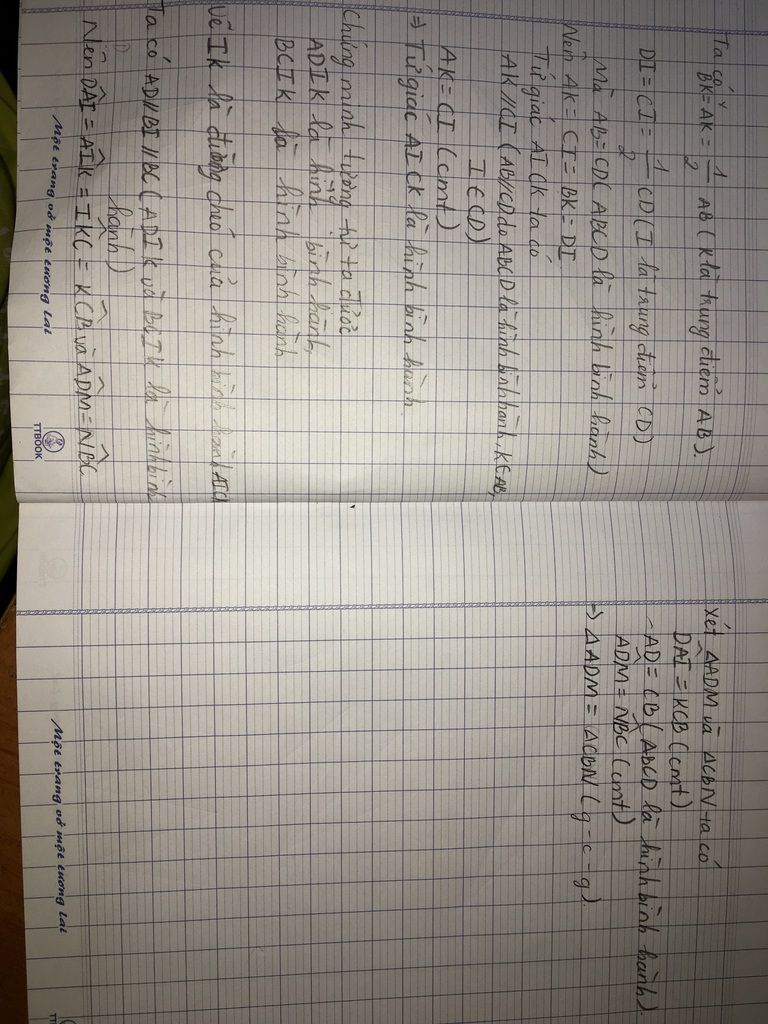 Ta có
BK = AK = 1/2 AB (K là trung điểm AB).
DI = CI = 1/2 CD (I là trung điểm CD)
Mà AB = CD (ABCD là hình bình hành)
Nên AK = CI = BK = DI
Tứ giác AICK ta có
AK // CI (AB // CD do ABCD là hình bình hành, K∈AB,
I ∈ CD)
AK = CI (cmt)
⇒ Tứ giác AICK là hình bình hành.
Chứng minh tương tự ta được
ADIK là hình bình hành,
BCIK là hình bình hành
Vẽ IK là đường chéo của hình bình hành AICK
Ta có AD // BI // BC (ADIK và BCIK là hình bình
hành)
Nên DÂI = AÎK = IK̂C = KĈB và AD̂M = NB̂C
Một trang vở một tương lai
TTBOOK
Xét ΔADM và ΔCBN ta có
DÂI = KĈB (cmt)
- AD = CB (ABCD là hình bình hành).
AD̂M = NB̂C (cmt)
⇒ ΔADM = ΔCBN (g-c-g).
Một trang vở một tương lai
TTBOOK